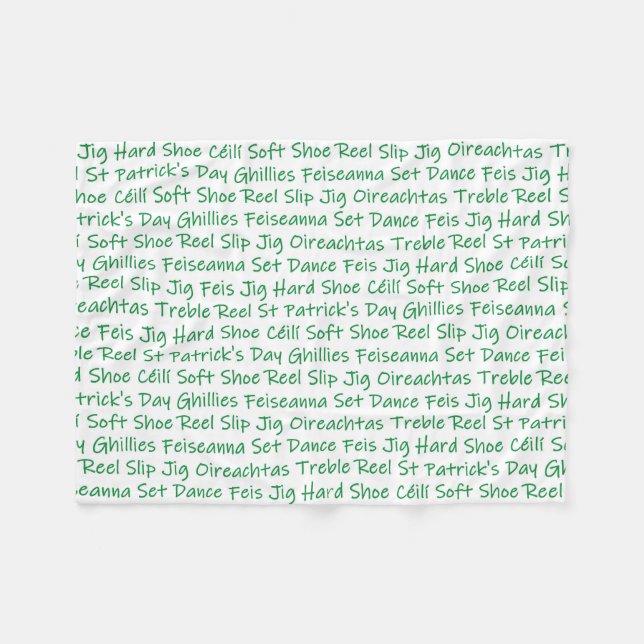 Jig Hard Shoe Céilí Soft Shoe Reel Slip Jig Oireachtas Treble
St Patrick's Day Ghillies Feiseanna Set Dance Feis Jig H
Shoe Céilí Soft Shoe Reel Slip Jig Oireachtas Treble Reel
trick's Day Ghillies Feiseanna Set Dance Feis Jig Hard Sh
lí Soft Shoe Reel Slip Jig Oireachtas Treble Reel St Patric
y Ghillies Feiseanna Set Dance Feis Jig Hard Shoe Céilí S
Reel Slip Jig Feis Jig Hard Shoe Céilí Soft Shoe Reel Slip
reachtas Treble Reel St Patrick's Day Ghillies Feiseanna S
ce Feis Jig Hard Shoe Céilí Soft Shoe Reel Slip Jig Oireach
ble Reel St Patrick's Day Ghillies Feiseanna Set Dance Fei
d Shoe Céilí Soft Shoe Reel Slip Jig Oireachtas Treble Ree
Patrick's Day Ghillies Feiseanna Set Dance Feis Jig Hard S
lí Soft Shoe Reel Slip Jig Oireachtas Treble Reel St Patri
y Ghillies Feiseanna Set Dance Feis Jig Hard Shoe Céilí So
Reel Slip Jig Oireachtas Treble Reel St Patrick's Day Gh
seanna Set Dance Feis Jig Hard Shoe Céilí Soft Shoe Reel